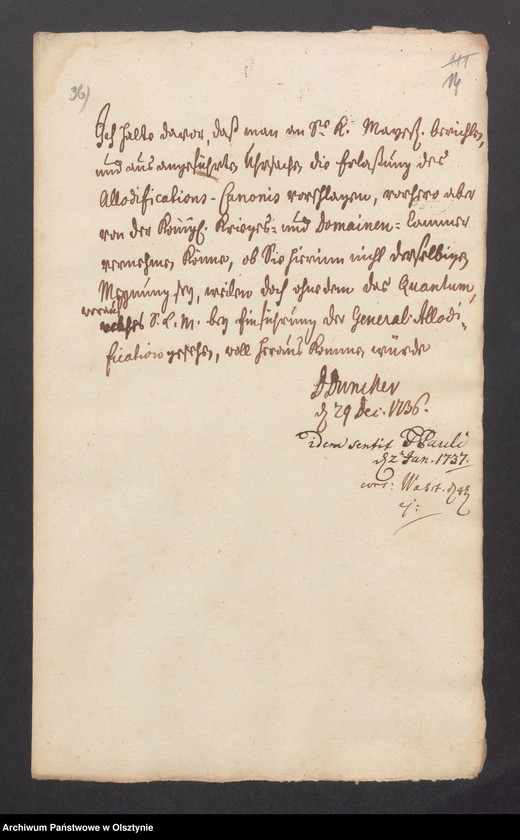 36)
111
114
Ich halte davor, daß man an Sr. K. Mayest. berichten,
und aus angeführten Uhrsachen die Erlaßung des
Allodifications-Canonis vorschlagen, vorhero aber
von der Königl. Krieges- und Domainen-Cammer
vernehmen könne, ob Sie hierinn nicht derselbigen
Meynung sey, weilen doch ohnedem das Quantum,
worauf
S. K. M. bey Einführung der General-Allodi-
fication gesehen, voll heraus kommen würde
DDuncker
d 29 Dec. 1736.
idem sentit Pauli
d 2t Jan. 1737.
Archiwum Państwowe w Olsztynie